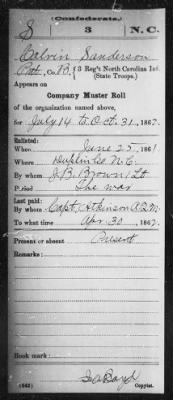 (Confederate.)
S 3 N.C.
Calvin Sanderson
Pvt., Co. B, 3 Reg't North Carolina Inf.
(State Troops.)
Appears on
Company Muster Roll
of the organization named above,
for July 14 to Oct. 31, 1862.
Enlisted:
When June 25, 1861
Where Duplin Co N.C.
By whom J.B. Brown, Lt
Period The war
Last paid:
By whom Capt. Atkinson A.Q.M.
To what time Apr. 30 1862.
Present or absent Present
Remarks:
Book mark:
(642)
Copyist.